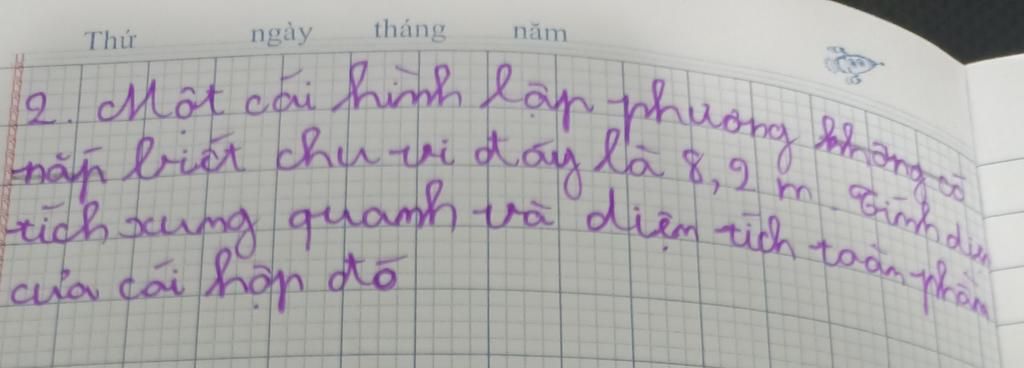 Thứ ngày tháng năm
2. Một cái hình lập phương không có
nắp biết chu vi đáy là 8,2 m. Tính diện
tích xung quanh và diện tích toàn phần
của cái hộp đó